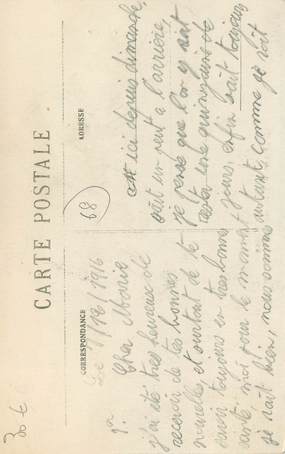 CARTE POSTALE
CORRESPONDANCE
ADRESSE
68
30 €
Le 1/12/1916
Cher Mario
j'ai été très heureuse de
recevoir de tes bonnes
nouvelles, et surtout de te
savoir toujours en très bonne
santé moi pour le moment
je vait bien, nous sommes
ici depuis dimanche,
un peut a l'arrière,
je pense que l'on y soit
jours, enfin sait toujours
autant, comme je soit